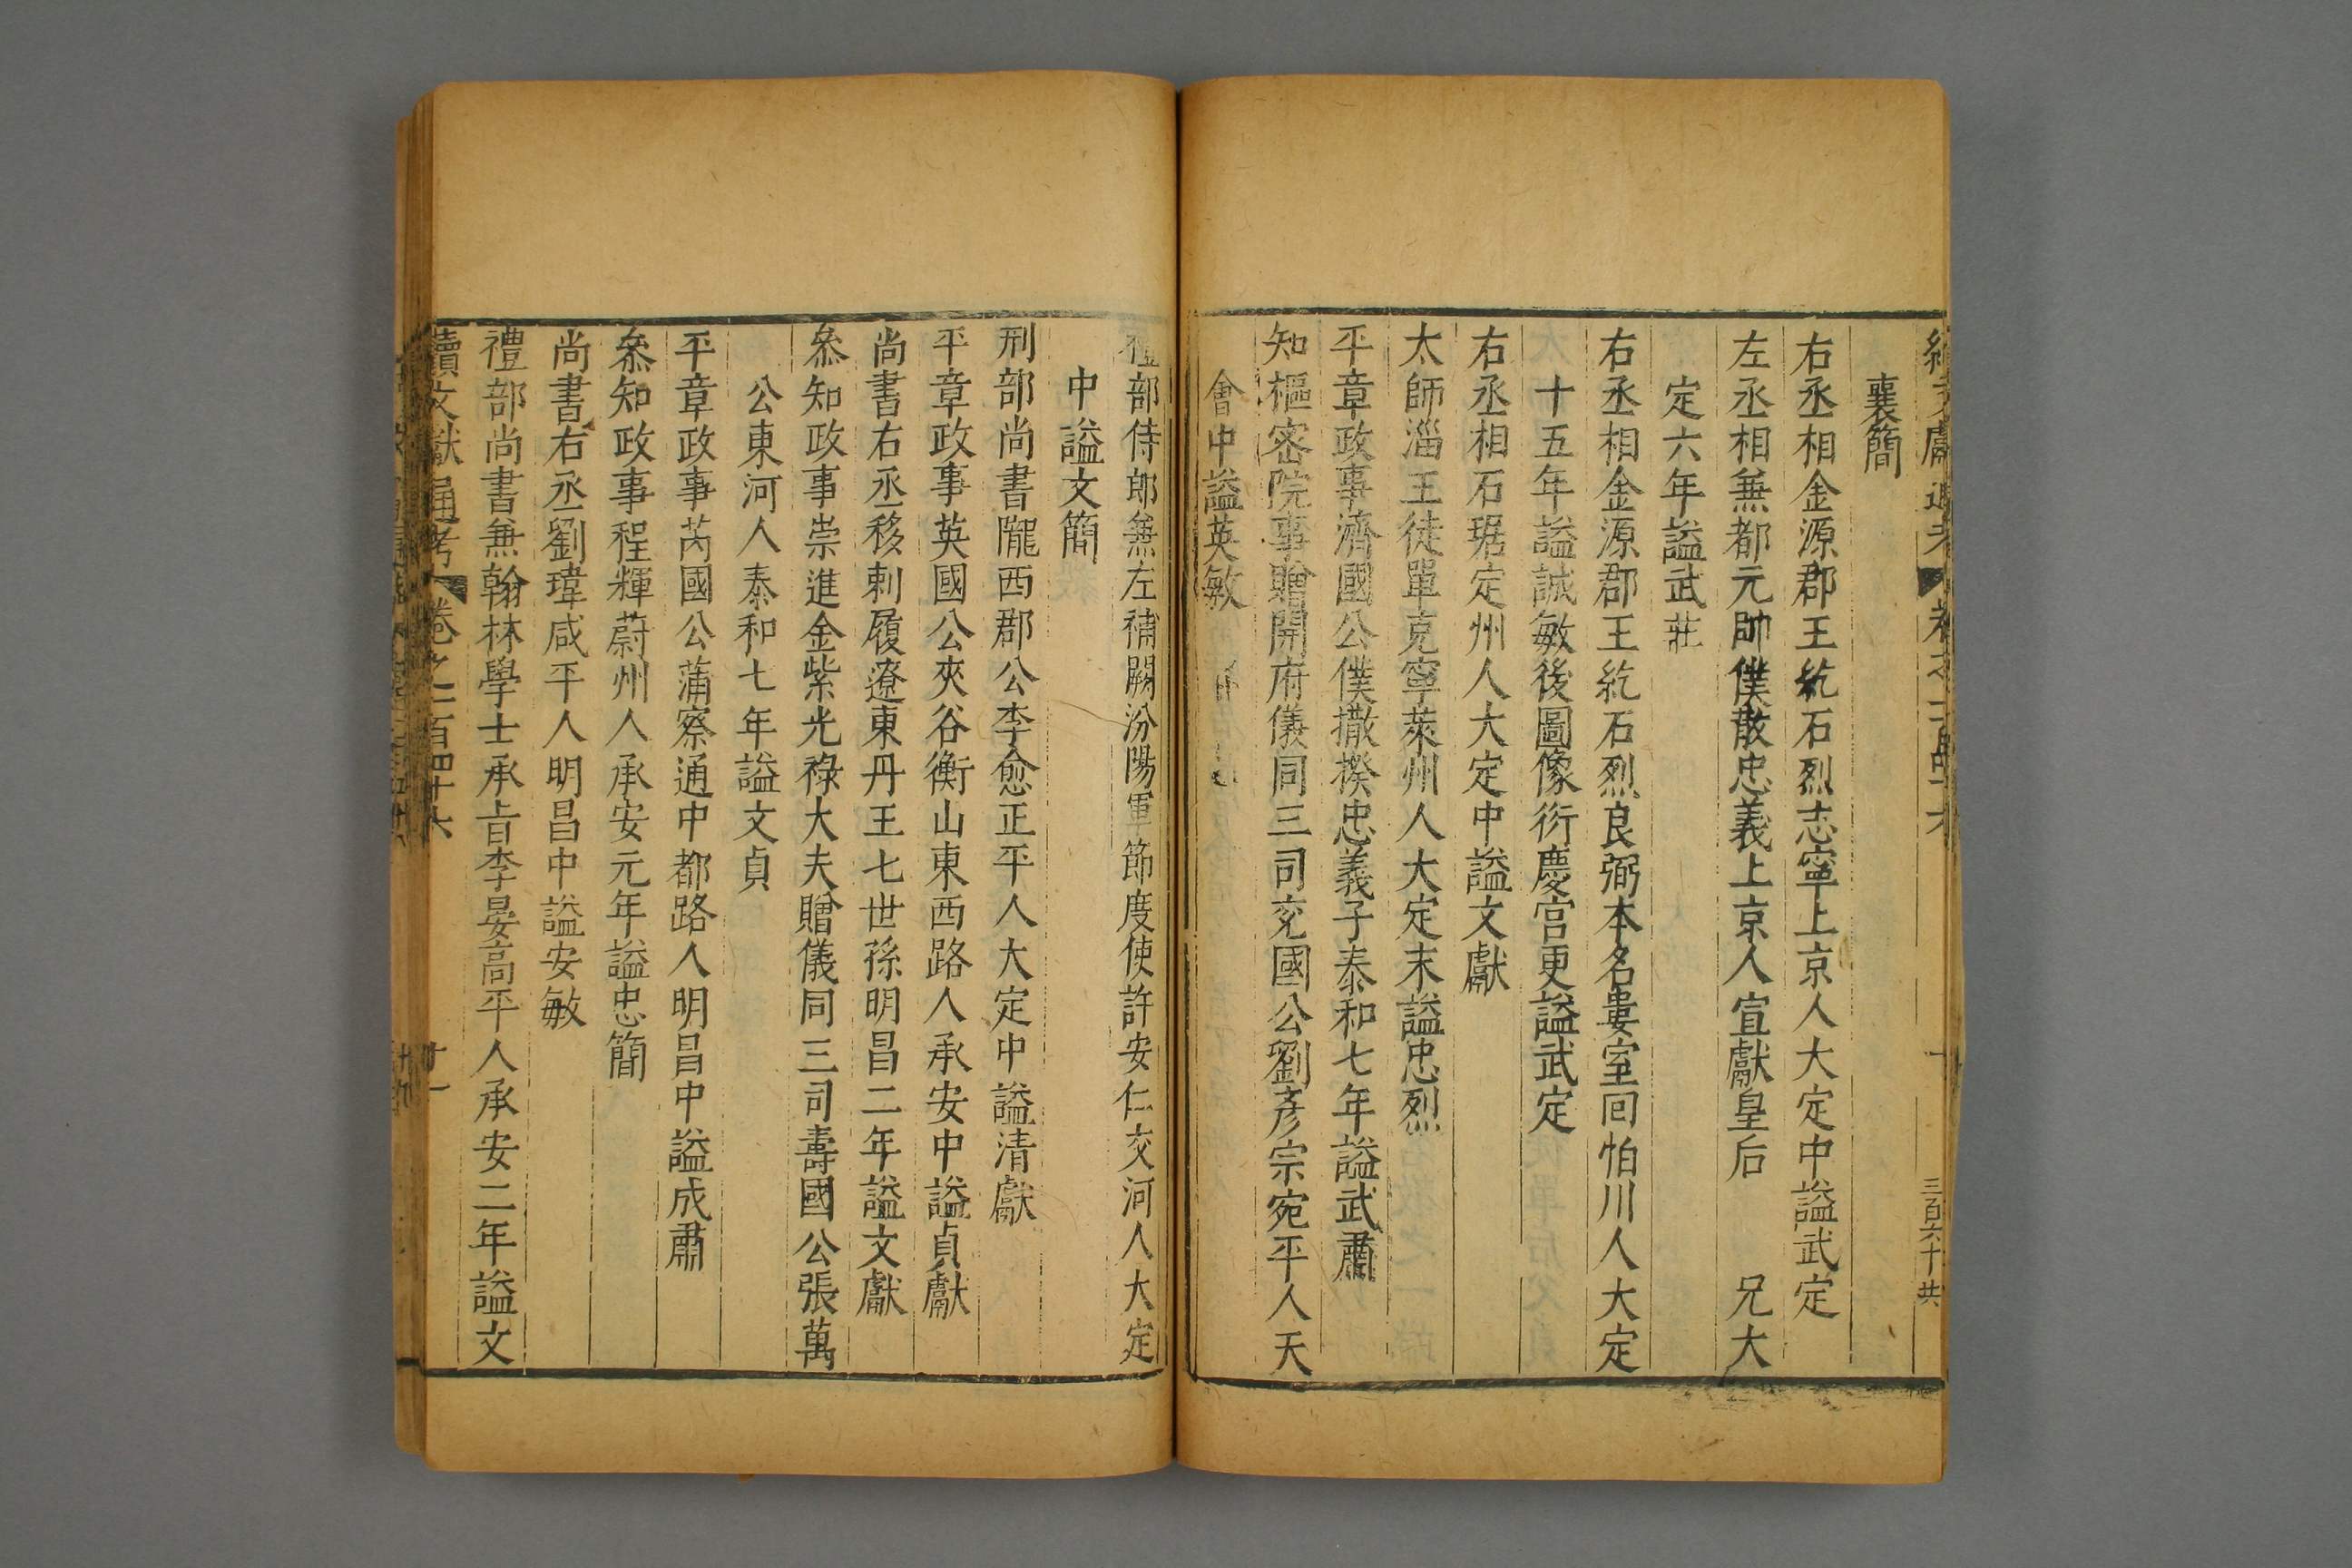 襄簡
右丞相金源郡王紇石烈志寧上京人大定中謚武定
左丞相無都元帥僕散忠義上京人宣獻皇后 兄大
定六年謚武莊
右丞相金源郡王紇石烈良弼本名婁室囘怕川人大定
十五年謚誠敏後圖像衍慶宮更謚武定
右丞相石琚定州人大定中謚文獻
太師淄王徒單克寧萊州人大定末謚忠烈
平章政事濟國公僕撒揆忠義子泰和七年謚武肅
知樞密院事贈開府儀同三司兖國公劉彥宗宛平人天
會中謚英敏
禮部侍郎兼左補闕汾陽軍節度使許安仁交河人大定
中謚文簡
刑部尚書隴西郡公李愈正平人大定中謚清獻
平章政事英國公夾谷衡山東西路人承安中謚貞獻
尚書右丞移剌履遼東丹王七世孫明昌二年謚文獻
叅知政事崇進金紫光祿大夫贈儀同三司壽國公張萬
公東河人泰和七年謚文貞
平章政事芮國公蒲察通中都路人明昌中謚成肅
叅知政事程輝蔚州人承安元年謚忠簡
尚書右丞劉瑋咸平人明昌中謚安敏
禮部尚書兼翰林學士承旨李晏高平人承安二年謚文
續文獻通考 卷之一百四十六